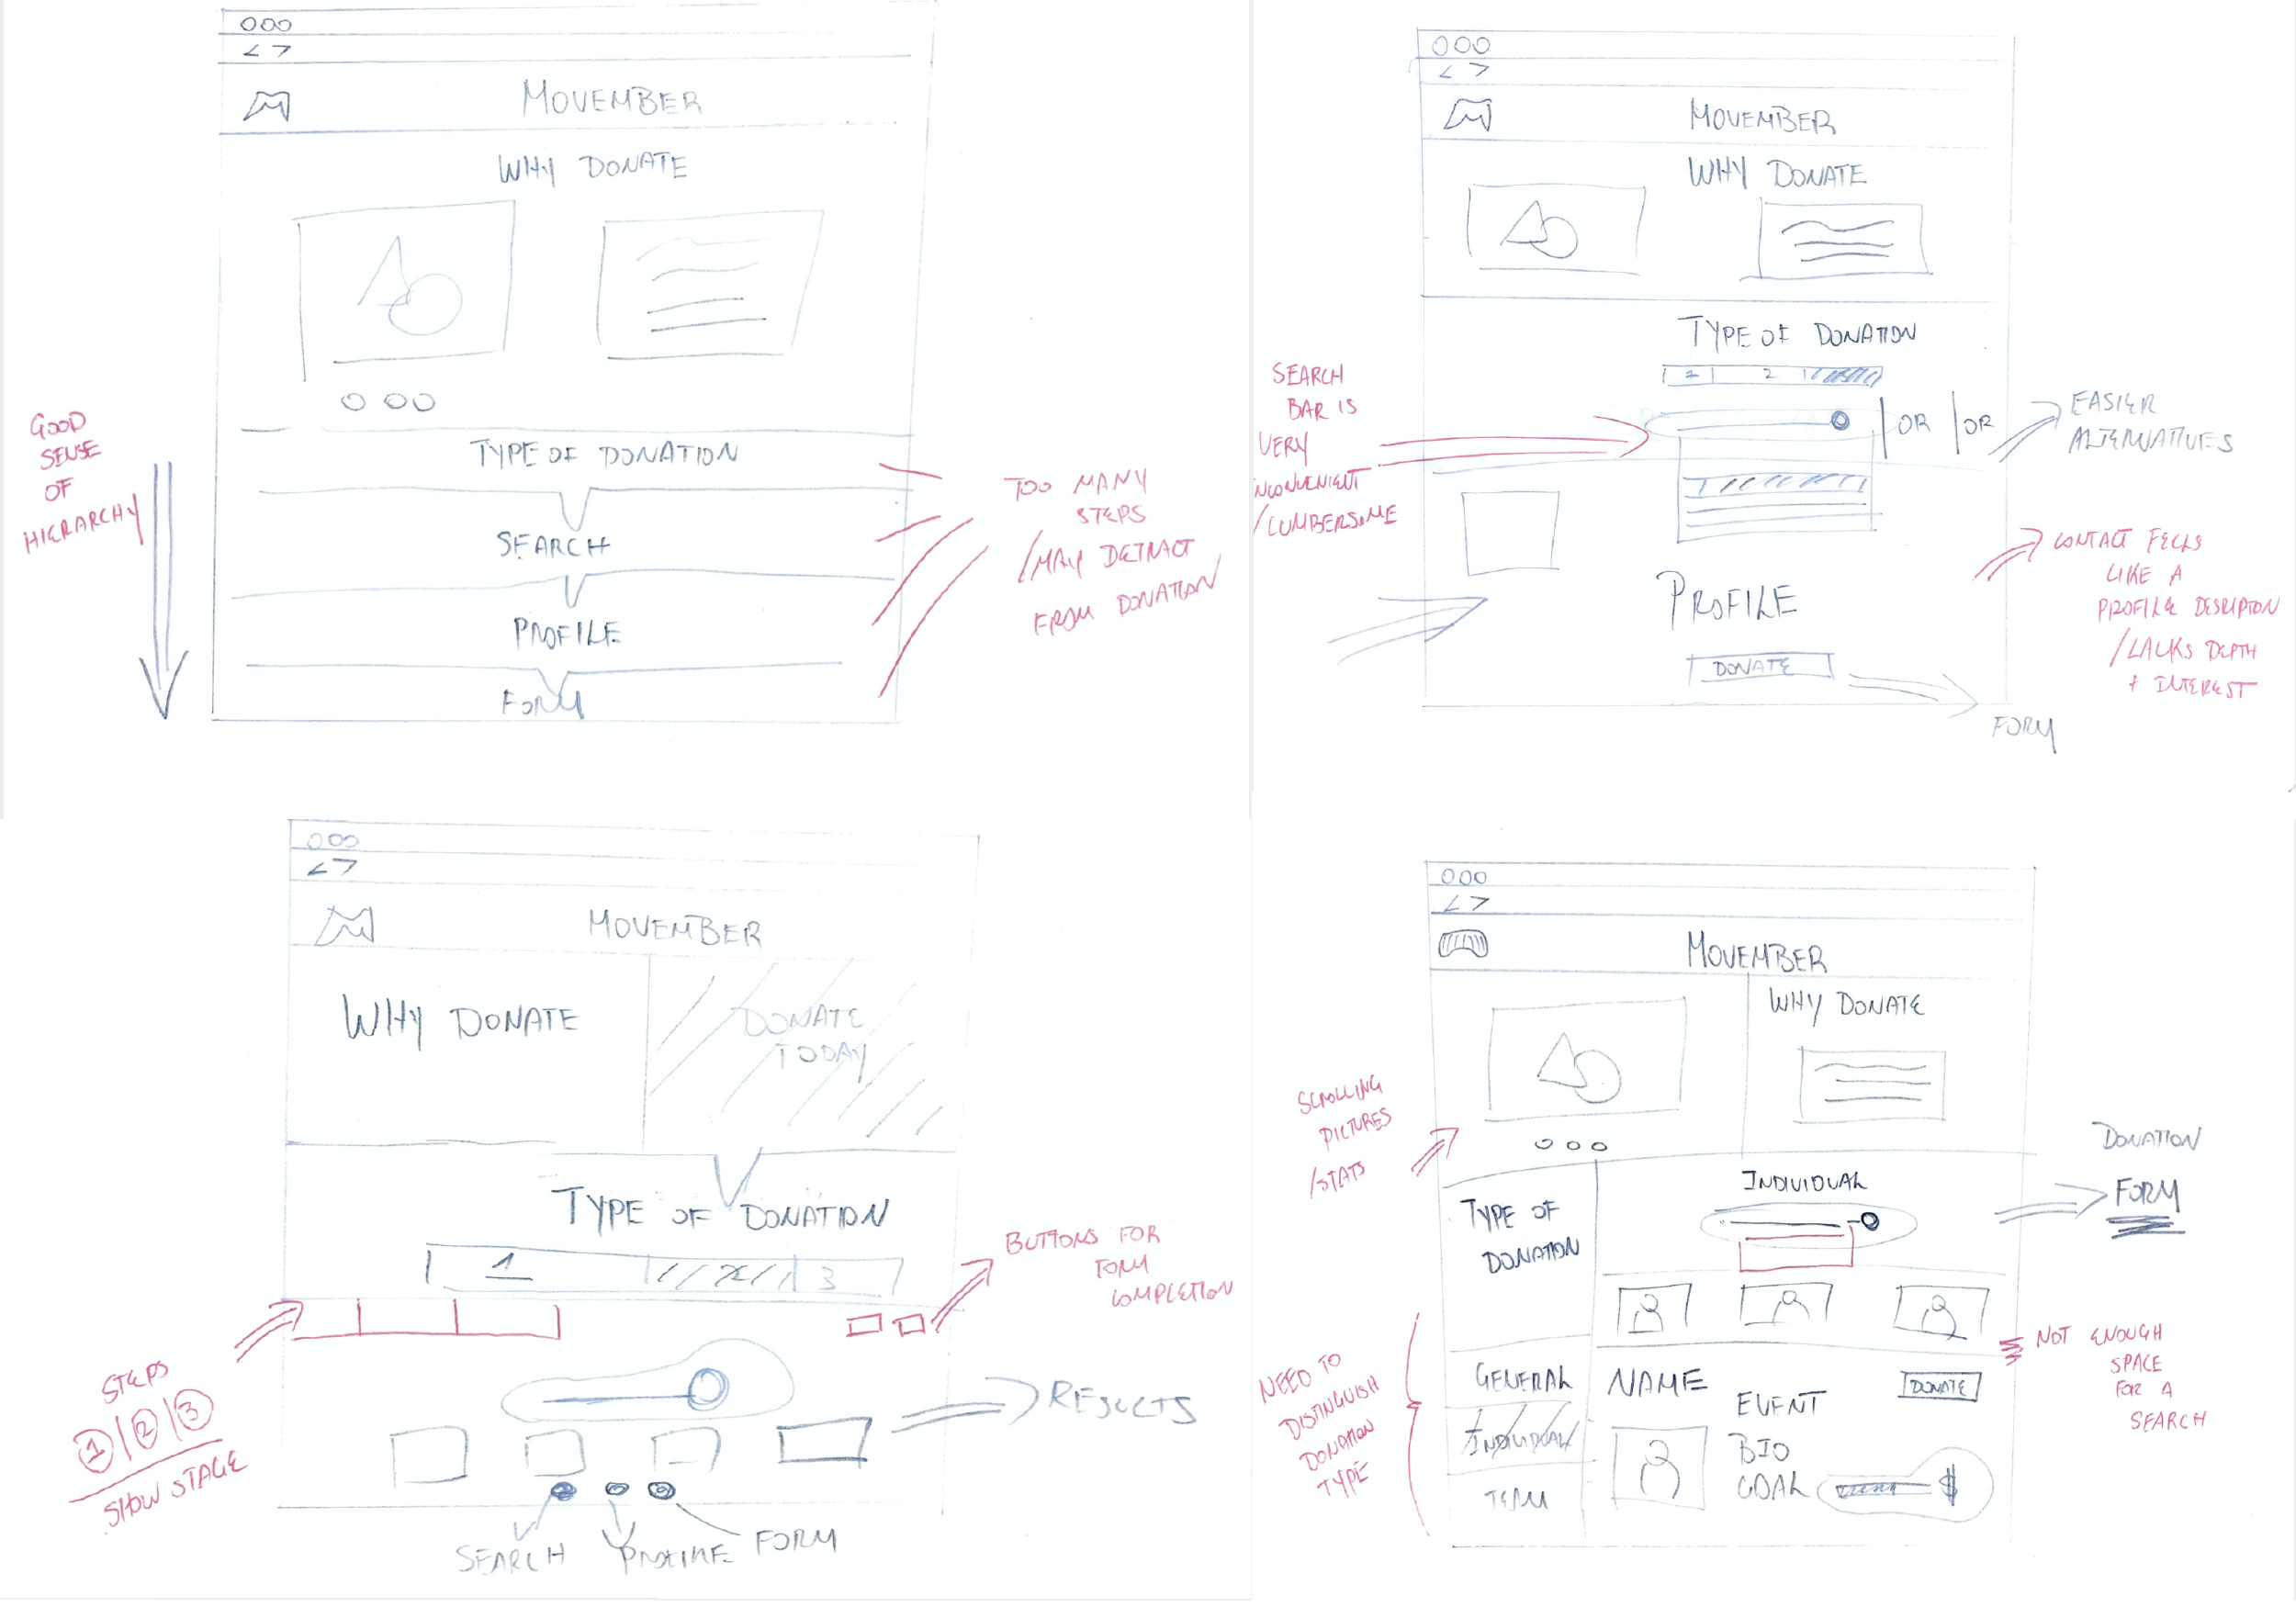 MOVEMBER
WHY DONATE
TYPE OF DONATION
SEARCH
PROFILE
FORM
GOOD
SENSE
OF
HIERARCHY
TOO MANY
STEPS
/MAY DETRACT
FROM DONATION
MOVEMBER
WHY DONATE
TYPE OF DONATION
2
OR
OR
EASIER
ALTERNATIVES
SEARCH
BAR IS
VERY
INCONVENIENT
/CUMBERSOME
PROFILE
DONATE
FORM
CONTACT FEELS
LIKE A
PROFILE DESRIPTON
/LACKS DEPTH
+ INTEREST
MOVEMBER
WHY DONATE
DONATE
TODAY
TYPE OF DONATION
1 2 3
BUTTONS FOR
FORM
COMPLETION
STEPS
1 | 2 | 3
SHOW STAGE
RESULTS
SEARCH PROFILE FORM
MOVEMBER
WHY DONATE
SCROLLING
PICTURES
/STATS
INDIVIDUAL
TYPE OF
DONATION
DONATION
FORM
NEED TO
DISTINGUISH
DONATION
TYPE
GENERAL
INDIVIDUAL
TEAM
NAME
EVENT
BIO
GOAL
$
DONATE
NOT ENOUGH
SPACE
FOR A
SEARCH